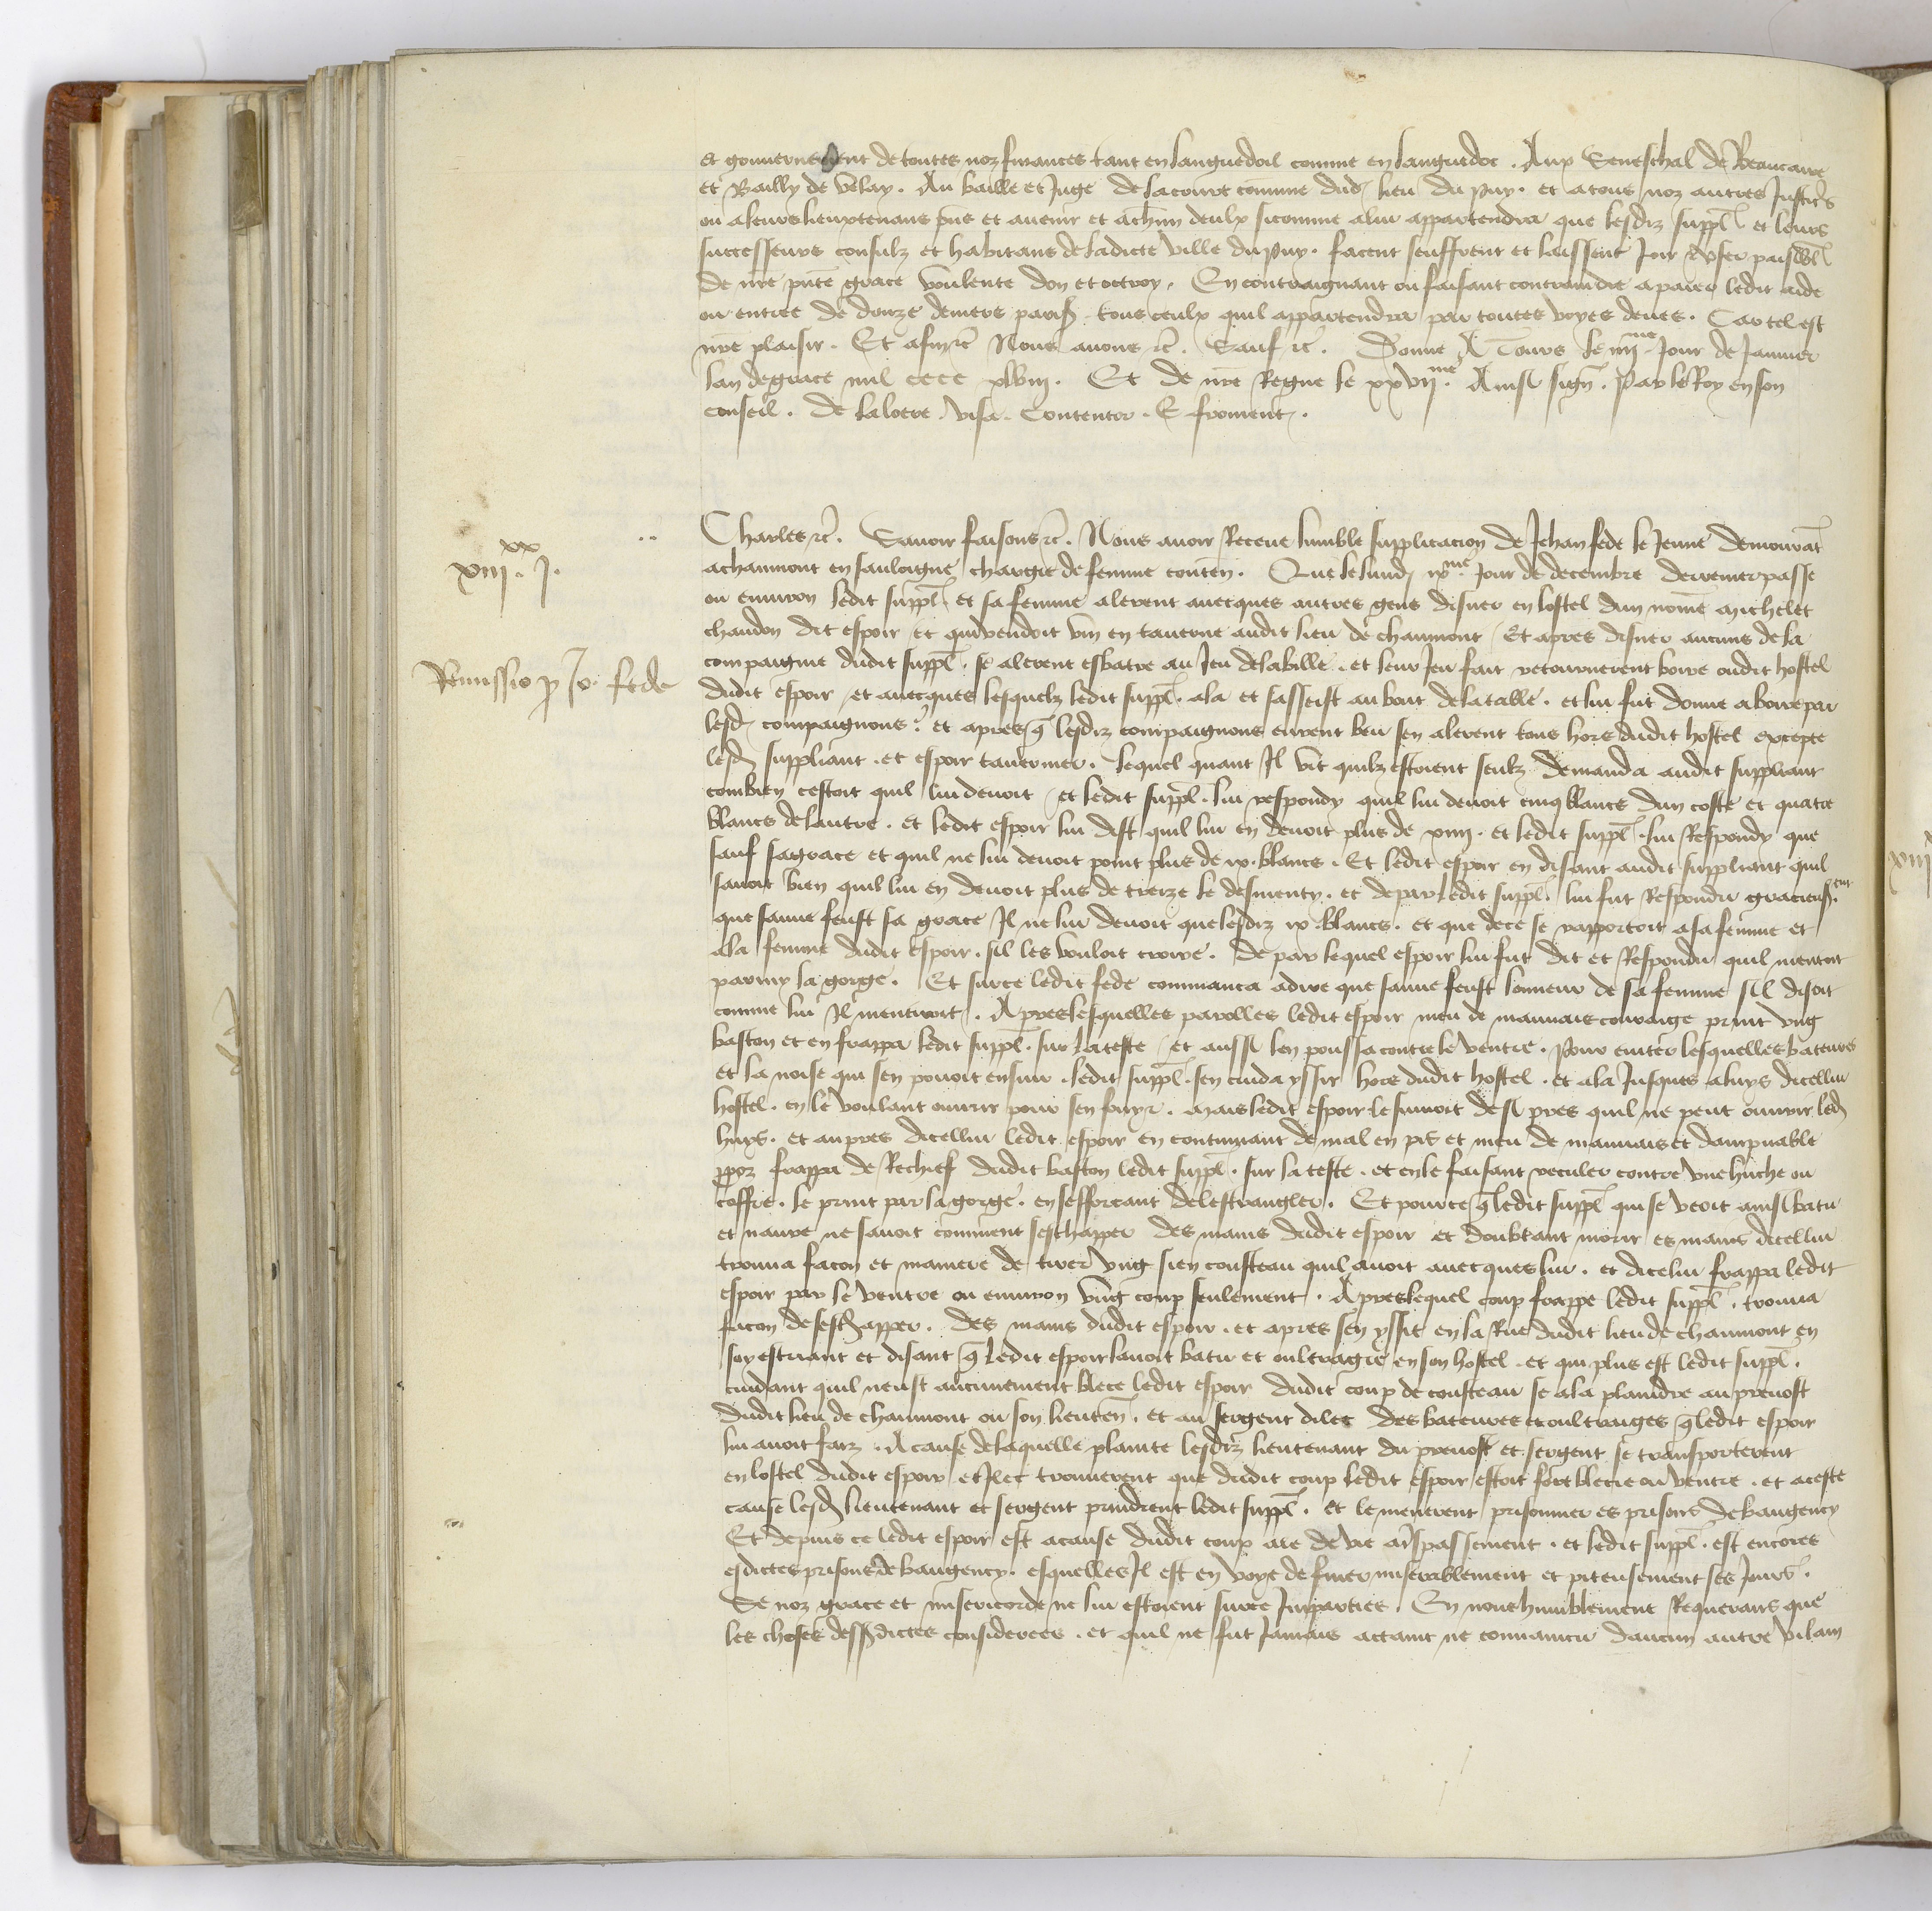 et gouvernement de toutes noz finances tant en languedoil comme en languedoc. Aux Seneschal de Beaucaire
et Bailly de Velay. Au baille et Juge de la court commune dud lieu du puy. et a tous noz autres Justicrs
ou a leurs lieuxtenans pns et avenir et a chun deulx sicomme a lui appartendra que lesdiz suppl et leurs
successeurs consulz et habitans de ladicte ville du puy. facent seuffrent et laissent Joir et user paisibl
de nre pnte grace voulente don et octroy. En contraignant ou faisant contraindre a paier ledit aide
ou entree de douze deniers paris tous ceulx quil appartendra par toutes voyes deues. Car tel est
nre plaisir. Et afin etc Nous avons etc. Sauf etc. Donne A Tours le iiii me Jour de Janvier
lan de grace mil cccc xlviii. Et de nre Regne le xxvii me. Ainsi signe. Par le Roy en son
conseil. De laloere. visa. Contentor. E froment.
xiii xx i.
Charles etc. Savoir faisons etc. Nous avoir Receue lumble supplicacion de Jehan fede le Jeune demourat
a chaumont en sauloigne chargie de femme conten. Que le lundi ix me Jour de decembre derrenier passe
ou environ ledit suppl. et sa femme alerent avecques autres gens disner en lostel dun nome Michelet
chaudon dit espoir et qui vendoit vin en taverne audit lieu de chaumont. Et apres disner aucuns de la
Remissio p Jo. fede
compaignie dudit suppl. se alerent esbatre au Jeu de la bille. et leur Jeu fait retournerent boire oudit hostel
dudit espoir et avecques lesquelz ledit suppl. ala et sasseist au bout de la table. et lui fut donne a boire par
lesd compaignons. et apres q lesdiz compaignons eurent beu sen alerent tous hors dudit hostel excepte
lesd suppliant. et espoir tavernier. lequel quant Il vit quilz estoient seulz demanda audit suppliant
combien cestoit quil lui devoit et ledit suppl. lui respondy quil lui devoit cinq blancs dun coste et quatre
blancs de lautre. et ledit espoir lui dist quil lui en devoit plus de xiiii. et ledit suppl. lui Respondy que
sauf sa grace et quil ne lui devoit point plus de ix. blancs. Et ledit espoir en disant audit suppliant quil
savoit bien quil lui en devoit plus de treize le desmenty. et de par ledit suppl. lui fut Respondu gracieusment
que sauve feust sa grace Il ne lui devoit que lesdiz ix. blancs. et que de ce se rapportoit a sa femme et
a la femme dudit espoir. sil les vouloit croire. de par lequel espoir lui fut dit et Respondu quil mentoit
parmy la gorge. Et sur ce ledit fede commanca a dire que sauve feust lonneur de sa femme sil disoit
comme lui Il mentiroit. Apres lesquelles parolles ledit espoir meu de mauvais couraige print ung
baston et en frappa ledit suppl. sur la teste et aussi len poussa contre le ventre. Pour eviter lesquelles bateures
et la noise qui sen povoit ensuir. ledit suppl. sen cuida yssir hors dudit hostel. et ala Jusques a luys dicellui
hostel. en le voulant ouvrir pour sen fouyr. Mais ledit espoir le suivoit de si pres quil ne peut ouvrir led
huys. et aupres dicellui ledit espoir en continuant de mal en pis et meu de mauvais et dampnable
ppoz frappa de Rechief dudit baston ledit suppl. sur la teste. et en le faisant reculer contre une huche ou
coffre. le print par la gorge. en sefforcant de lestrangler. Et pource q ledit suppl qui se veoit ainsi batu
et navre ne savoit comment seschapper des mains dudit espoir et doubtant morir es mains dicellui
trouva facon et maniere de tirer ung sien cousteau quil avoit avecques lui. et dicelui frappa ledit
espoir par le ventre ou environ ung coup seulement. Apres lequel coup frappe ledit suppl. trouva
facon de seschapper. des mains dudit espoir. et apres sen yssit en la Rue dudit lieu de chaumont en
soy escriant et disant q ledit espoir lavoit batu et oultragie en son hostel. et qui plus est ledit suppl.
cuidant quil neust aucunement blece ledit espoir dudit coup de cousteau se ala plaindre au prevost
dudit lieu de chaumont ou son lieuten. et au sergent dilec des bateures et oultrages q ledit espoir
lui avoit faiz. A cause de laquelle plainte lesdiz lieutenant du prevost et sergent se transporterent
en lostel dudit espoir et Ilec trouverent que dudit coup ledit espoir estoit fort blecie ou ventre. et a ceste
cause lesd lieutenant et sergent prindrent ledit suppl. et le menerent prisonnier es prisons de baugency
Et depuis ce ledit espoir est a cause dudit coup ale de vie a trspassement. et ledit suppl. est encores
esdictes prisons de baugency. esquelles Il est en voye de finer miserablement et piteusement ses Jours.
Se noz grace et misericorde ne lui estoient sur ce Imparties. En nous humblement Requerans que
les choses dessdictes considerees. et quil ne fut Jamais actaint ne convaincu daucun autre vilain